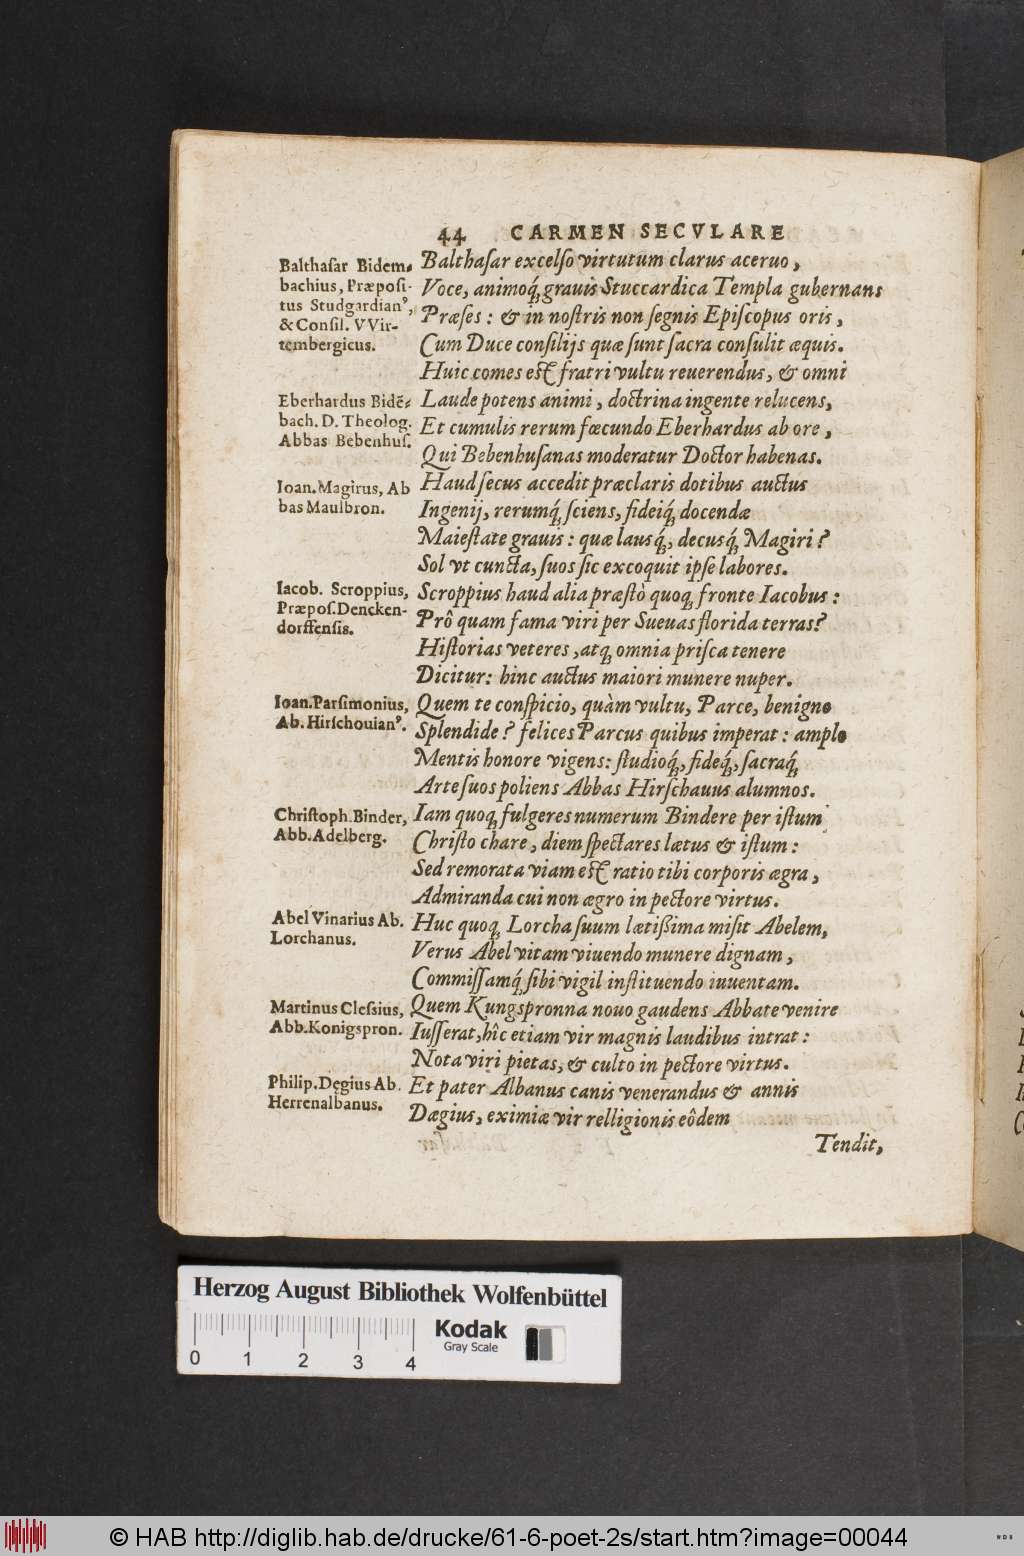 44 CARMEN SECVLARE
Balthaſar Bidem-
bachius, Præpoſi-
tus Studgardianꝰ,
& Conſil. VVir-
tembergicus.
Balthaſar excelſo virtutum clarus aceruo,
Voce, animoq́; grauis Stuccardica Templa gubernans
Præſes: & in noſtris non ſegnis Epiſcopus oris,
Cum Duce conſilijs quæ ſunt ſacra conſulit æquis.
Huic comes eſt fratri vultu reuerendus, & omni
Eberhardus Bidē-
bach. D. Theolog.
Abbas Bebenhuſ.
Laude potens animi, doctrina ingente relucens,
Et cumulis rerum fœcundo Eberhardus ab ore,
Qui Bebenhuſanas moderatur Doctor habenas.
Ioan. Magirus, Ab
bas Maulbron.
Haud ſecus accedit præclaris dotibus auctus
Ingenij, rerumq́; ſciens, fideiq́; docendæ
Maieſtate grauis: quæ lausq́;, decusq́; Magiri?
Sol vt cuncta, ſuos ſic excoquit ipſe labores.
Iacob. Scroppius,
Præpoſ. Dencken-
dorffenſis.
Scroppius haud alia præſtò quoq; fronte Iacobus:
Prô quam fama viri per Sueuas florida terras?
Hiſtorias veteres, atq; omnia priſca tenere
Dicitur: hinc auctus maiori munere nuper.
Ioan. Parſimonius,
Ab. Hirſchouianꝰ.
Quem te conſpicio, quàm vultu, Parce, benigno
Splendide? felices Parcus quibus imperat: amplo
Mentis honore vigens: ſtudioq́;, fideq́;, ſacraq́;
Arte ſuos poliens Abbas Hirſchauus alumnos.
Chriſtoph. Binder,
Abb. Adelberg.
Iam quoq; fulgeres numerum Bindere per iſtum
Chriſto chare, diem ſpectares lætus & iſtum:
Sed remorata viam eſt ratio tibi corporis ægra,
Admiranda cui non ægro in pectore virtus.
Abel Vinarius Ab.
Lorchanus.
Huc quoq; Lorcha ſuum lætißima miſit Abelem,
Verus Abel vitam viuendo munere dignam,
Commiſſamq́; ſibi vigil inſtituendo iuuentam.
Martinus Cleſsius,
Abb. Konigspron.
Quem Kungspronna nouo gaudens Abbate venire
Iuſſerat, hîc etiam vir magnis laudibus intrat:
Nota viri pietas, & culto in pectore virtus.
Philip. Degius Ab.
Herrenalbanus.
Et pater Albanus canis venerandus & annis
Dægius, eximiæ vir relligionis eôdem
Tendit,
Herzog August Bibliothek Wolfenbüttel
Kodak
Gray Scale
0 1 2 3 4
© HAB http://diglib.hab.de/drucke/61-6-poet-2s/start.htm?image=00044